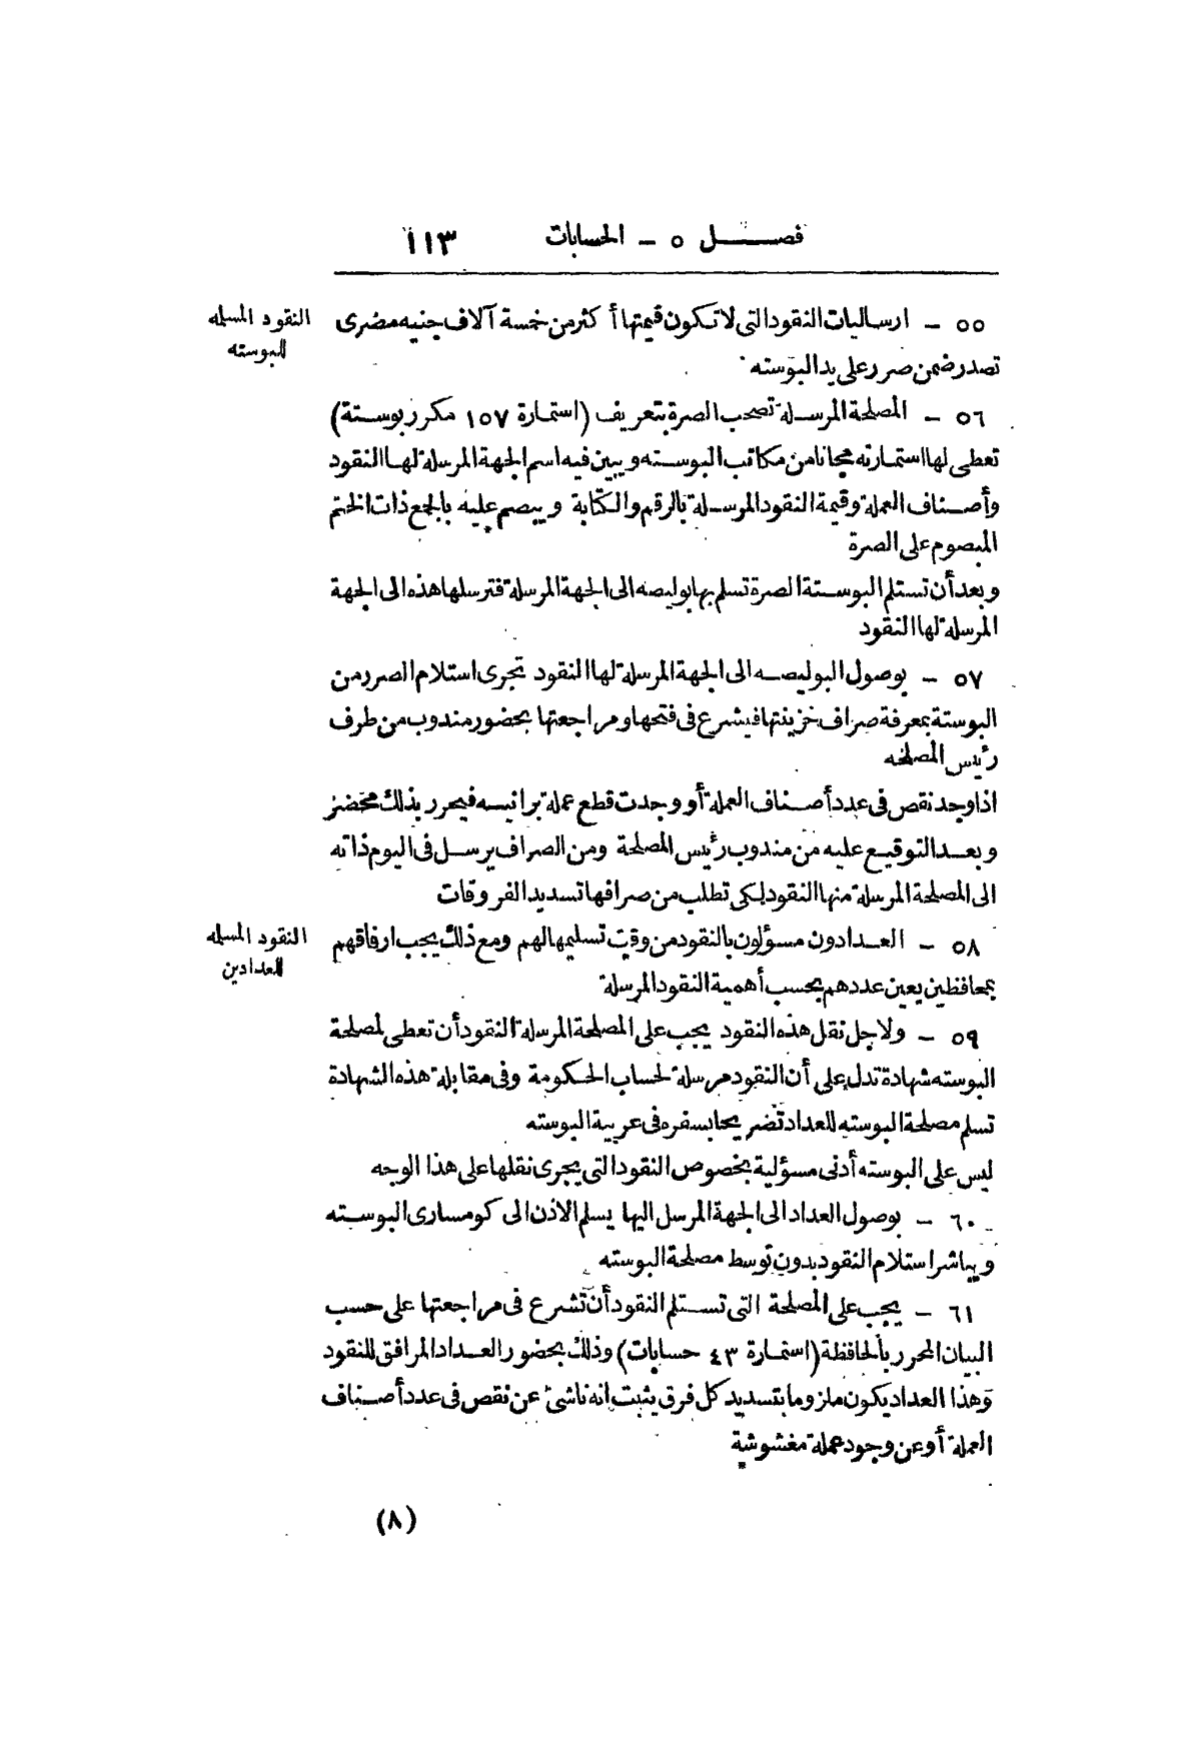 فصل ٥ – الحسابات ١١٣
٥٥ – ارساليات النقود التى لا تكون قيمتها أكثر من خمسة آلاف جنيه مصرى
النقود المسلمه
للبوسته
تصدر ضمن صرر على يد البوسته
٥٦ – المصلحة المرسلة تصحب الصرة بتعريف (استمارة ١٥٧ مكرر بوستة)
تعطى لها استمارته مجانا من مكاتب البوسته ويبين فيه اسم الجهة المرسلة لها النقود
وأصناف العملة وقيمة النقود المرسلة بالرقم والكتابة ويبصم عليه بالجمع ذات الختم
المبصوم على الصرة
وبعد أن تستلم البوستة الصرة تسلم بها بوليصه الى الجهة المرسلة فترسلها هذه الى الجهة
المرسلة لها النقود
٥٧ – بوصول البوليصه الى الجهة المرسلة لها النقود تجرى استلام الصرر من
البوستة بمعرفة صراف خزينتها فيشرع فى فتحها ومراجعتها بحضور مندوب من طرف
رئيس المصلحه
اذا وجد نقص فى عدد أصناف العملة أو وجدت قطع عملة برانيسه فيحرر بذلك محضر
وبعد التوقيع عليه من مندوب رئيس المصلحة ومن الصراف يرسل فى اليوم ذاته
الى المصلحة المرسلة منها النقود لكى تطلب من صرافها تسديد الفروقات
٥٨ – العدادون مسؤلون بالنقود من وقت تسليمها لهم ومع ذلك يجب ارفاقهم
النقود المسلمه
للعدادين
بمحافظين يعين عددهم بحسب أهمية النقود المرسلة
٥٩ – ولاجل نقل هذه النقود يجب على المصلحة المرسلة النقود أن تعطى لمصلحة
البوسته شهادة تدل على أن النقود مرسلة لحساب الحكومة وفى مقابلة هذه الشهادة
تسلم مصلحة البوسته للعداد تصريحا بسفره فى عربية البوسته
ليس على البوسته أدنى مسؤلية بخصوص النقود التى يجرى نقلها على هذا الوجه
٦٠ – بوصول العداد الى الجهة المرسل اليها يسلم الاذن الى كومسارى البوسته
ويباشر استلام النقود بدون توسط مصلحة البوسته
٦١ – يجب على المصلحة التى تستلم النقود أن تشرع فى مراجعتها على حسب
البيان المحرر بالحافظة (استمارة ٤٣ حسابات) وذلك بحضور العداد المرافق للنقود
وهذا العداد يكون ملزوما بتسديد كل فرق يثبت انه ناشئ عن نقص فى عدد أصناف
العملة أو عن وجود عملة مغشوشة
(٨)